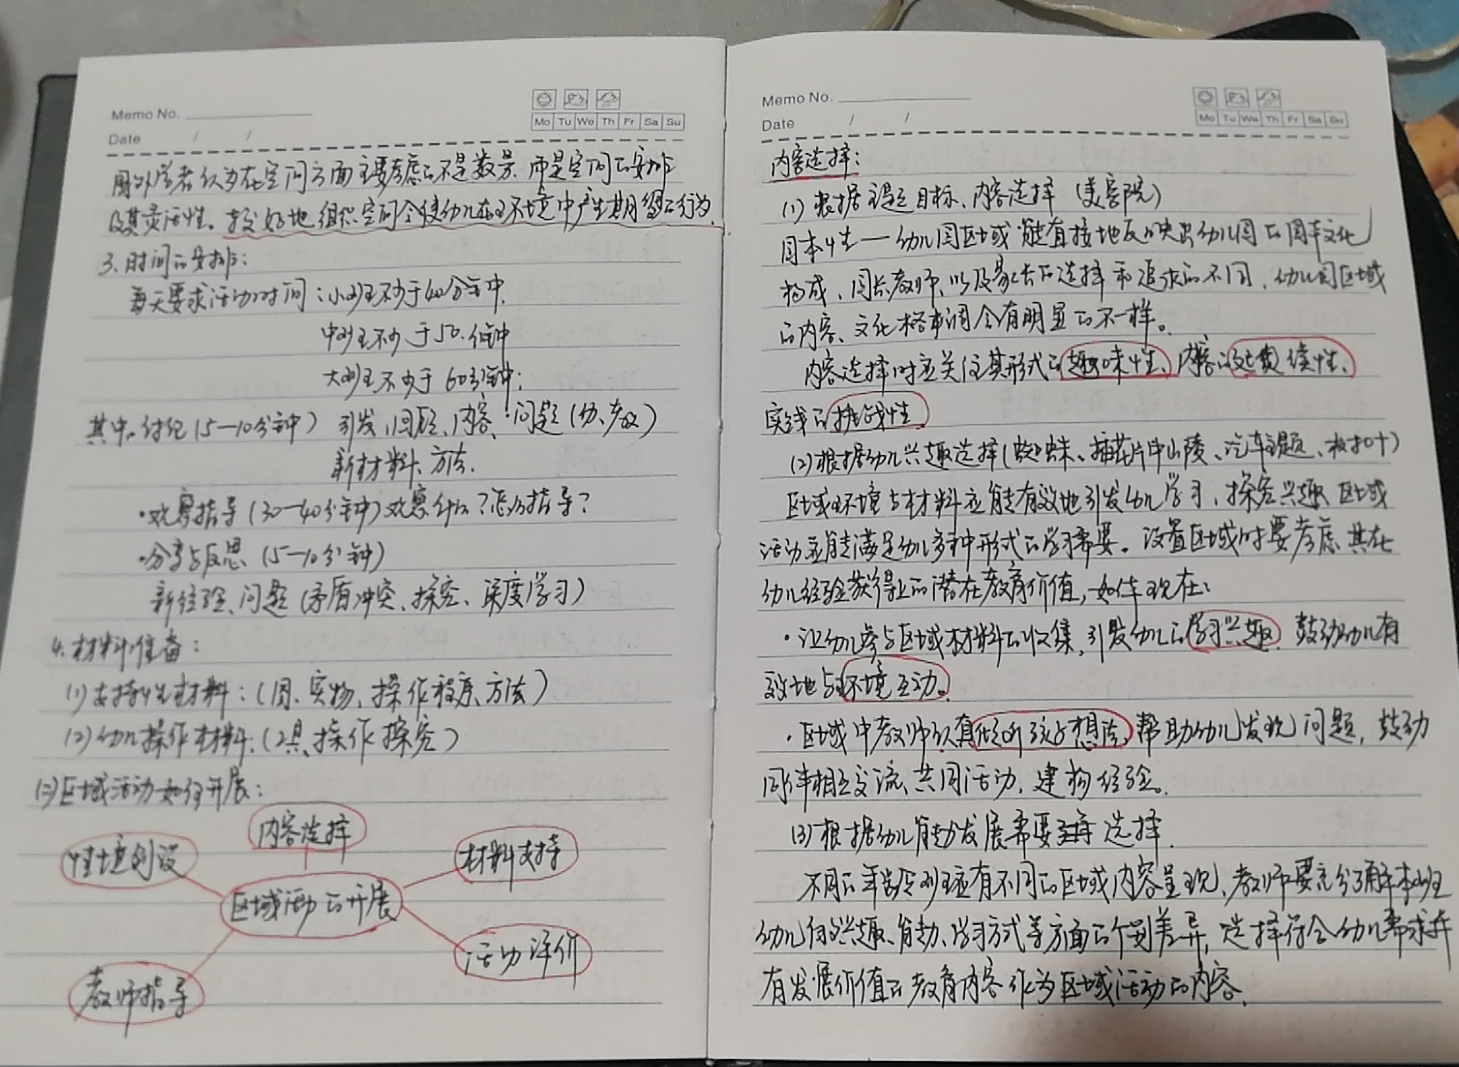 Memo No.
Date / /
Mo Tu We Th Fr Sa Su
国外学者认为在空间方面主要考虑的不是数量,而是空间的安排
及其灵活性。较好地组织空间会使幼儿在环境中产生期望的行为.
3.时间的安排:
每天要求活动时间:小班不少于40分钟.
中班不少于50分钟
大班不少于60分钟;
其中.讨论(5—10分钟) 引发、回顾、内容、问题(幼、教)
新材料、方法.
·观察指导(30—40分钟)观察什么?怎么指导?
·分享与反思(5—10分钟)
新经验、问题(矛盾冲突、探究、深度学习)
4.材料准备:
(1)支持性材料:(图、实物、操作程序、方法)
(2)幼儿操作材料:(工具、操作、探究)
(三)区域活动如何开展:
内容选择
材料支持
区域活动的开展
活动评价
教师指导
Memo No.
Date / /
Mo Tu We Th Fr Sa Su
内容选择:
(1)根据主题目标、内容选择(美容院)
园本性—幼儿园区域能直接地反映出幼儿园的园本文化
构成,园长、教师、以及家长的选择和追求的不同,幼儿园区域
的内容、文化格调会有明显的不一样。
内容选择时应关注其形式的趣味性、内容的延续性、
实践的挑战性
(2)根据幼儿兴趣选择(蜘蛛、插花片中山陵、汽车主题、树叶)
区域环境与材料应能有效地引发幼儿学习、探究兴趣,区域
活动应能满足幼儿多种形式的学习需要。设置区域时要考虑其在
幼儿经验获得上的潜在教育价值,如体现在:
·让幼儿参与区域材料的收集,引发幼儿的学习兴趣,鼓励幼儿有
效地与环境互动。
·区域中教师认真倾听孩子想法,帮助幼儿发现问题,鼓励
同伴相互交流、共同活动,建构经验。
(3)根据幼儿能力发展需要 选择.
不同的年龄班应有不同的区域内容呈现,教师要充分了解本班
幼儿在兴趣、能力、学习方式等方面的个别差异,选择符合幼儿需求并
有发展价值的教育内容作为区域活动的内容.